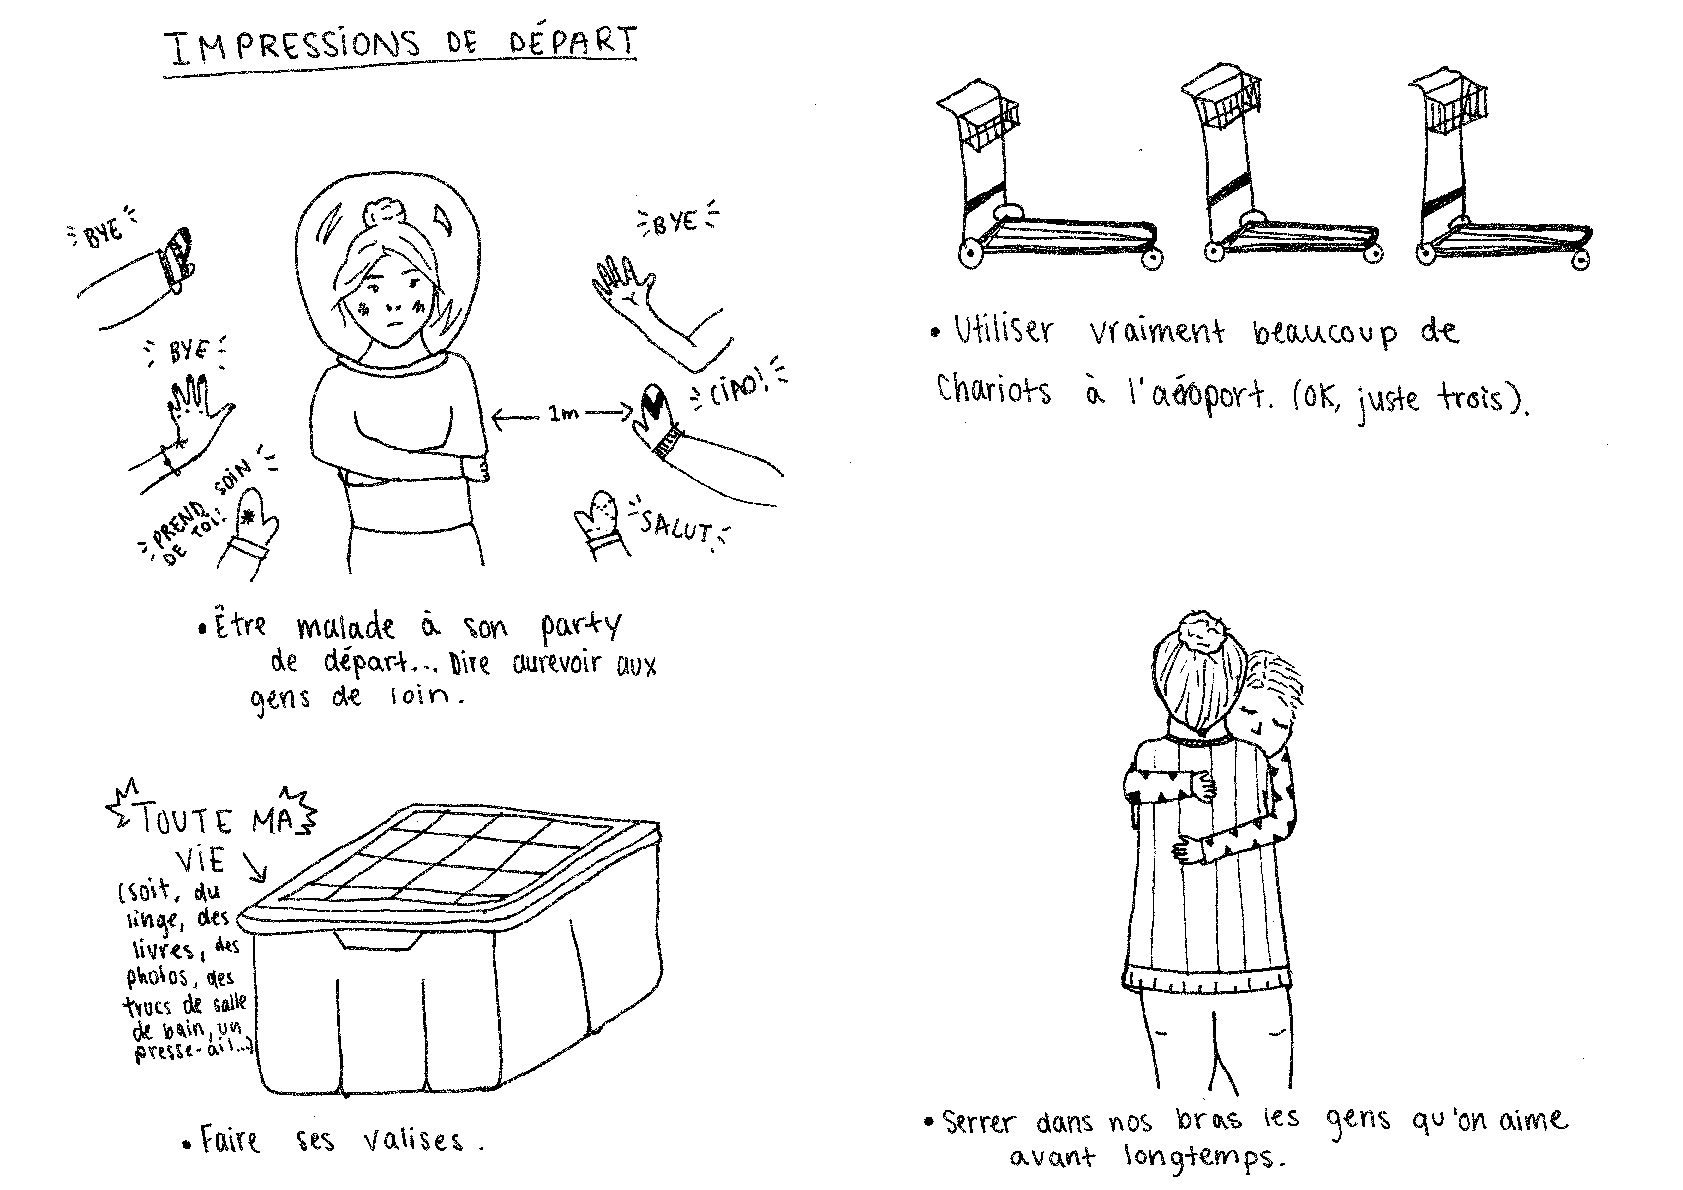 IMPRESSIONS DE DÉPART
BYE
BYE
PREND SOIN
DE TOI!
BYE
CIAO!
1m
SALUT
• Être malade à son party
de départ... Dire aurevoir aux
gens de loin.
TOUTE MA
VIE
(soit, du
linge, des
livres, des
photos, des
trucs de salle
de bain, un
presse-ail...)
• Faire ses valises.
• Utiliser vraiment beaucoup de
chariots à l'aéoport. (OK, juste trois).
• Serrer dans nos bras les gens qu'on aime
avant longtemps.